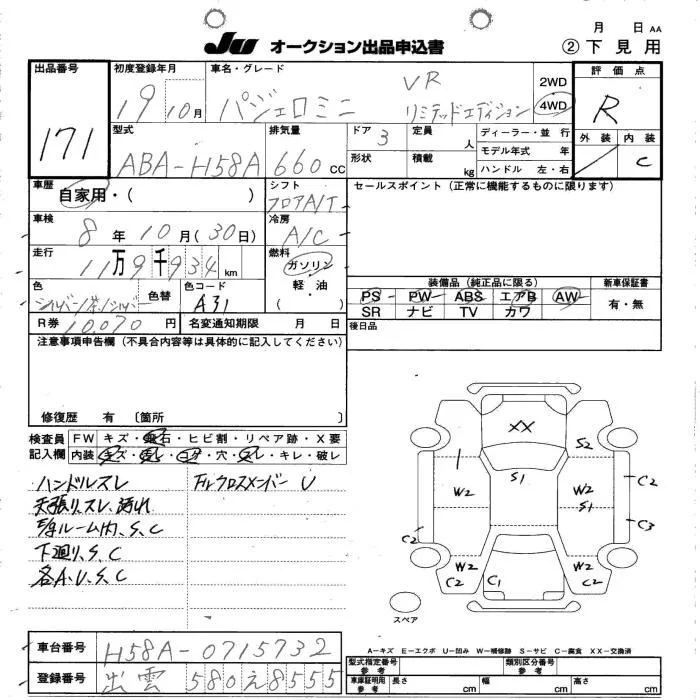 月 日 AA
JU オークション出品申込書 ② 下見用
出品番号 171
初度登録年月 19 10月
車名・グレード パジェロミニ VR リミテッドエディション
2WD
4WD
評価点 R
外装 内装
C
型式 ABA-H58A
排気量 660 cc
ドア 3
定員 人
形状
積載 kg
ディーラー・並行
モデル年式 年
ハンドル 左・右
車歴 自家用・( )
シフト フロアA/T
セールスポイント (正常に機能するものに限ります)
車検 8年 10月(30日)
冷房 A/C
走行 11万9千934 km
燃料 ガソリン
軽・油
( )
色 シルバー/茶/シルバー
色替
色コード A31
装備品 (純正品に限る)
新車保証書
PS PW ABS エアB AW
SR ナビ TV カワ
有・無
R券 10,070円
名変通知期限 月 日
後日品
注意事項申告欄 (不具合内容等は具体的に記入してください)
修復歴 有 〔箇所 〕
検査員 記入欄
FW キズ・飛石・ヒビ割・リペア跡・X要
内装 キズ・汚れ・コゲ・穴・スレ・キレ・破レ
ハンドルスレ
天張リスレ、汚れ
E/Gルーム内、S、C
下廻り、S、C
各A、U、S、C
Fルクロスメンバー U
XX
S2
S1
W2
W2
S1
C2
C3
C2
W2
C2
W2
C2
C1
スペア
A-キズ E-エクボ U-凹み W-補修跡 S-サビ C-腐食 XX-交換済
車台番号 H58A-0715732
登録番号 出雲 580 え 8555
型式指定番号 参考
類別区分番号 参考
車庫証明用 参考
長さ cm
幅 cm
高さ cm